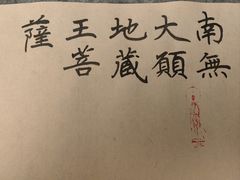 南無
大願
地藏
王菩
薩